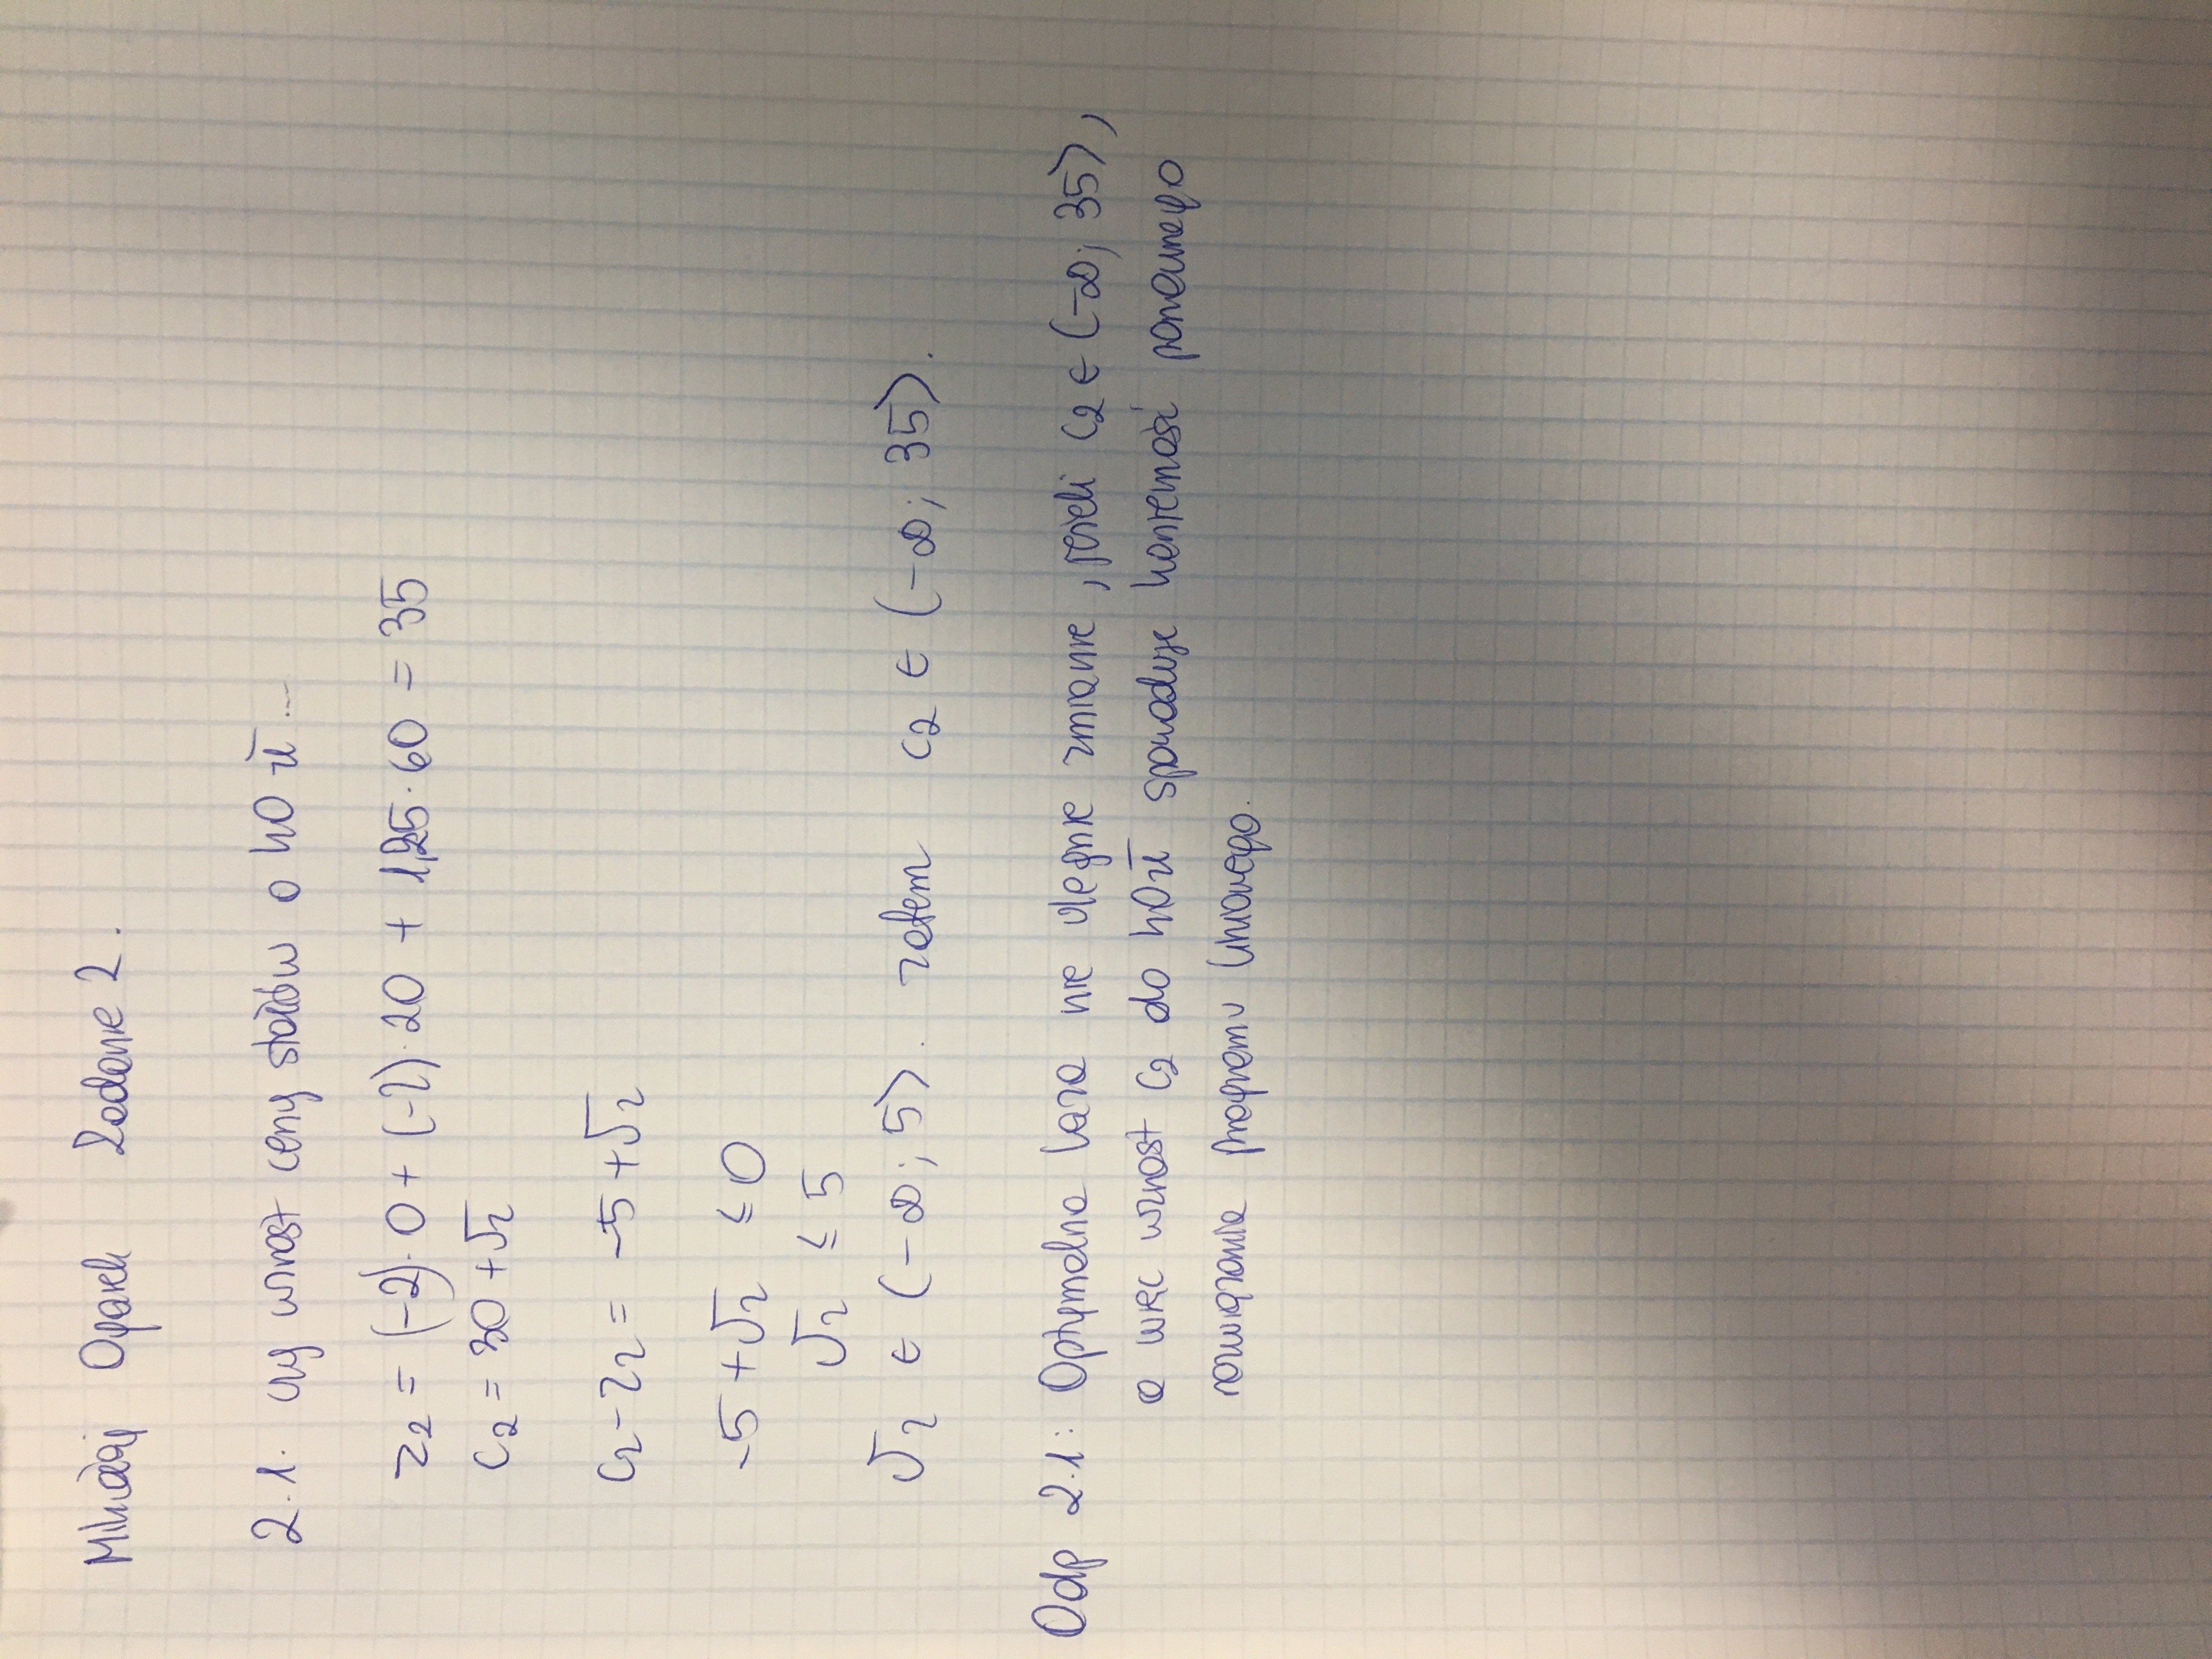 Mikołaj Oparek Zadanie 2.
2.1. czy wzrost ceny stołów o 40 zł ...
z₂ = (-2)·0 + (-2)·20 + 1,25·60 = 35
c₂ = 30 + √2
c₂ - z₂ = -5 + √2
-5 + √2 ≤ 0
√2 ≤ 5
√2 ∈ (-∞; 5⟩. zatem c₂ ∈ (-∞; 35⟩.
Odp 2.1: Optymalna baza nie ulegnie zmianie, jeżeli c₂ ∈ (-∞; 35⟩,
a więc wzrost c₂ do 40 zł spowoduje konieczność ponownego
rozwiązania programu liniowego.